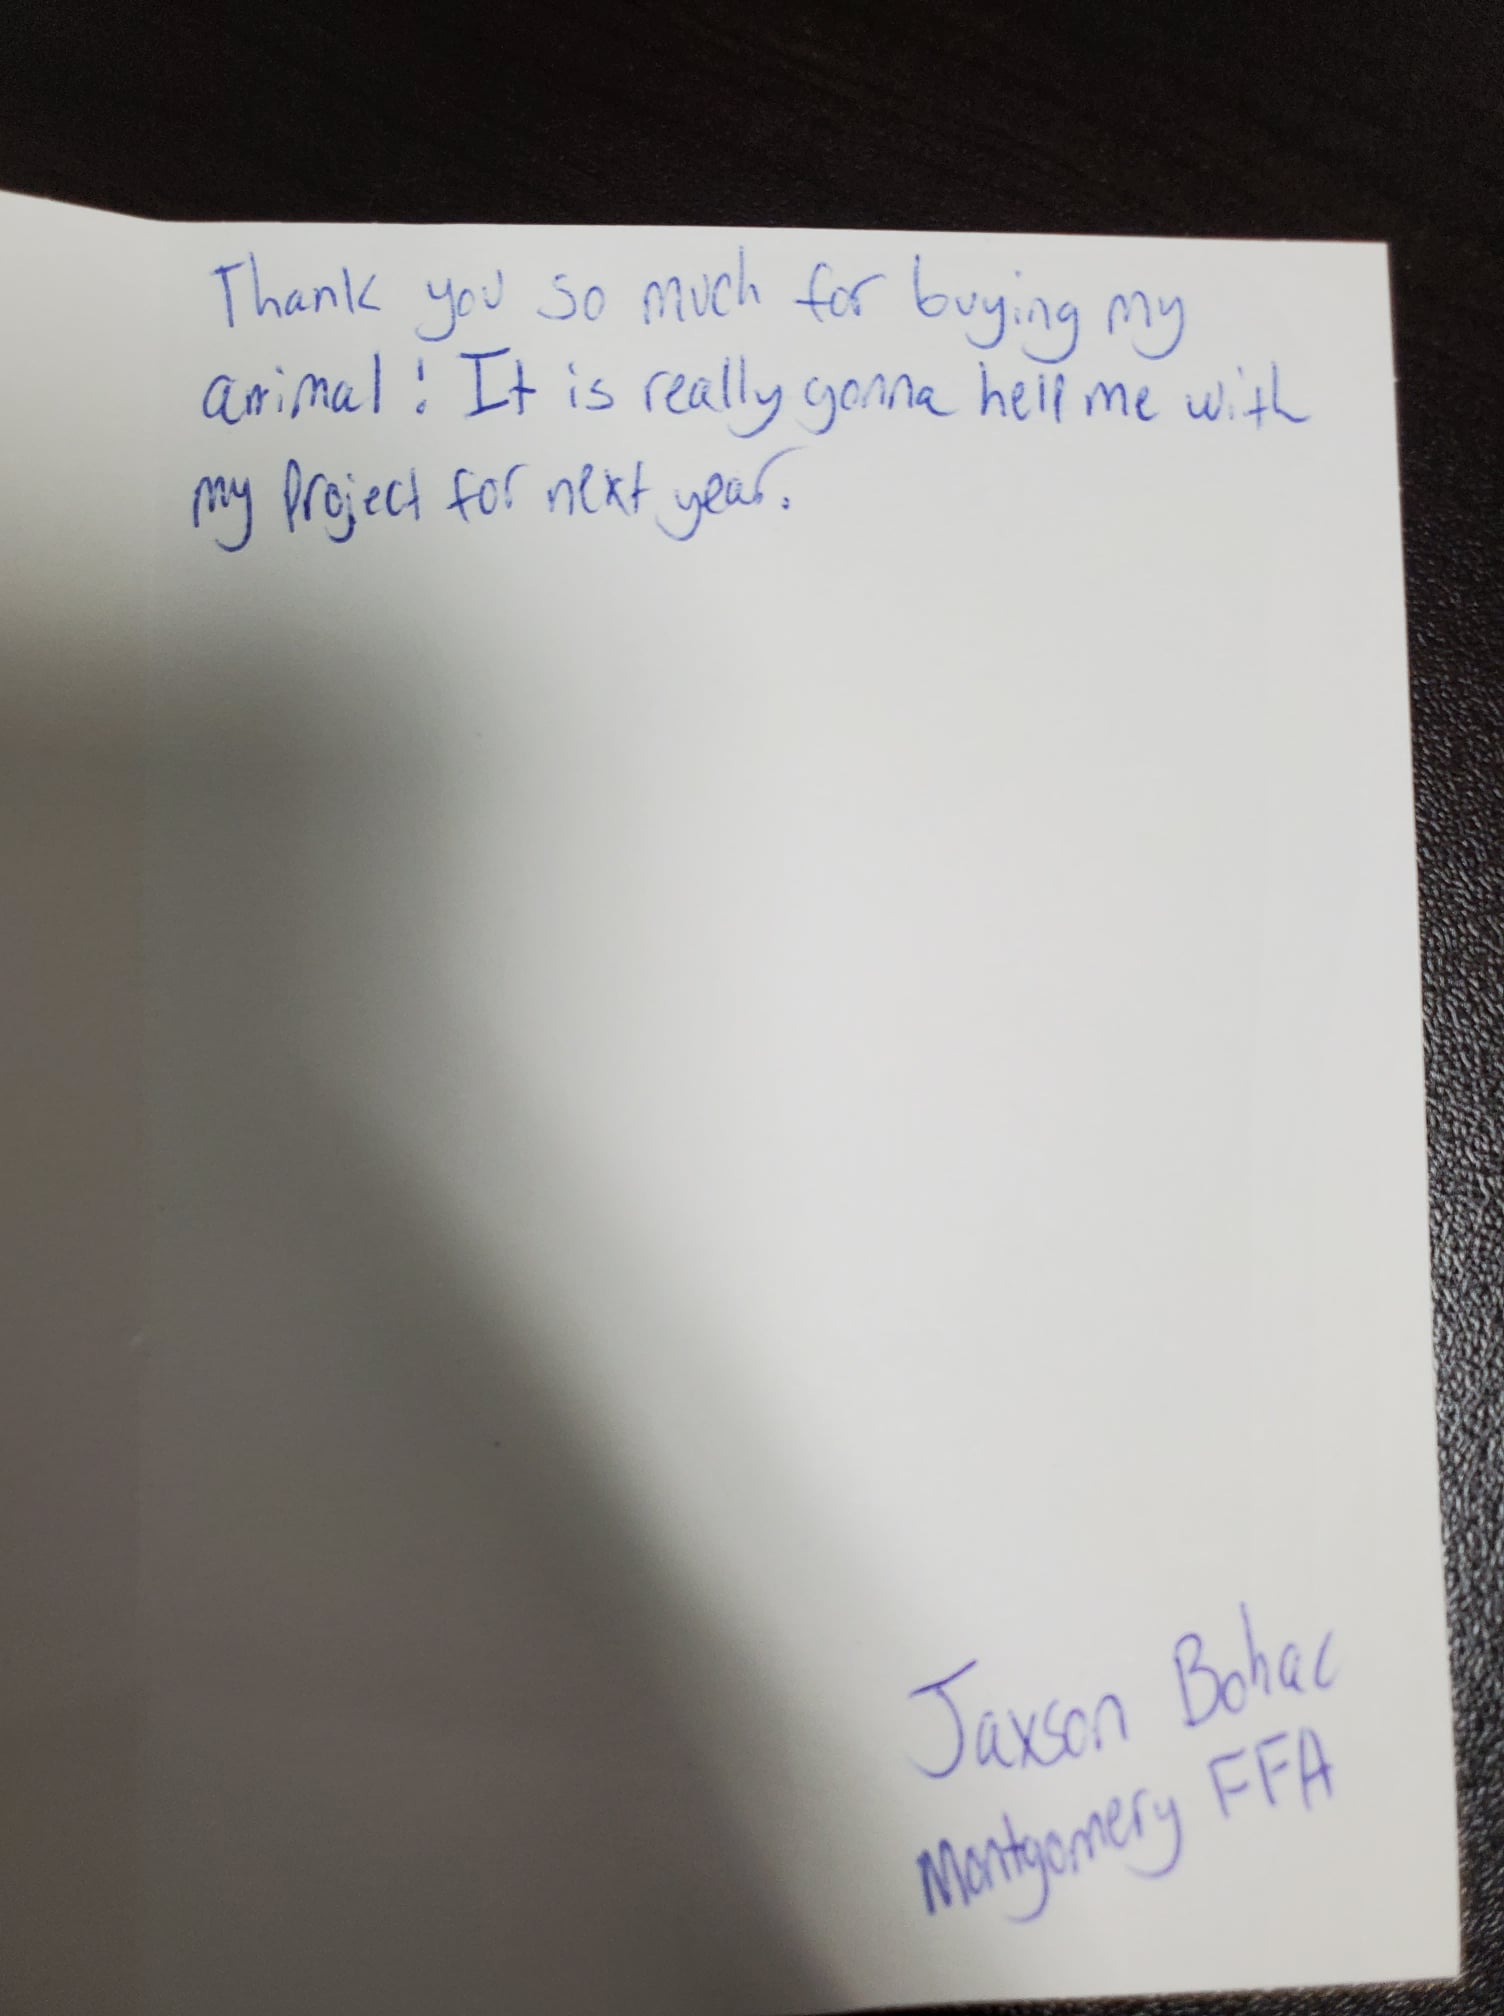 Thank you so much for buying my
animal! It is really gonna help me with
my Project for next year.
Jaxson Bohac
Montgomery FFA